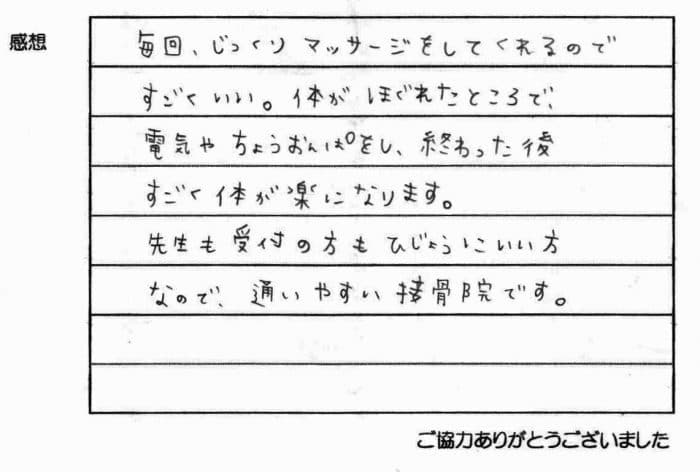 感想
毎回、じっくりマッサージをしてくれるので
すごくいい。体がほぐれたところで、
電気やちょうおんぱをし、終わった後
すごく体が楽になります。
先生も受付の方もひじょうにいい方
なので、通いやすい接骨院です。
ご協力ありがとうございました